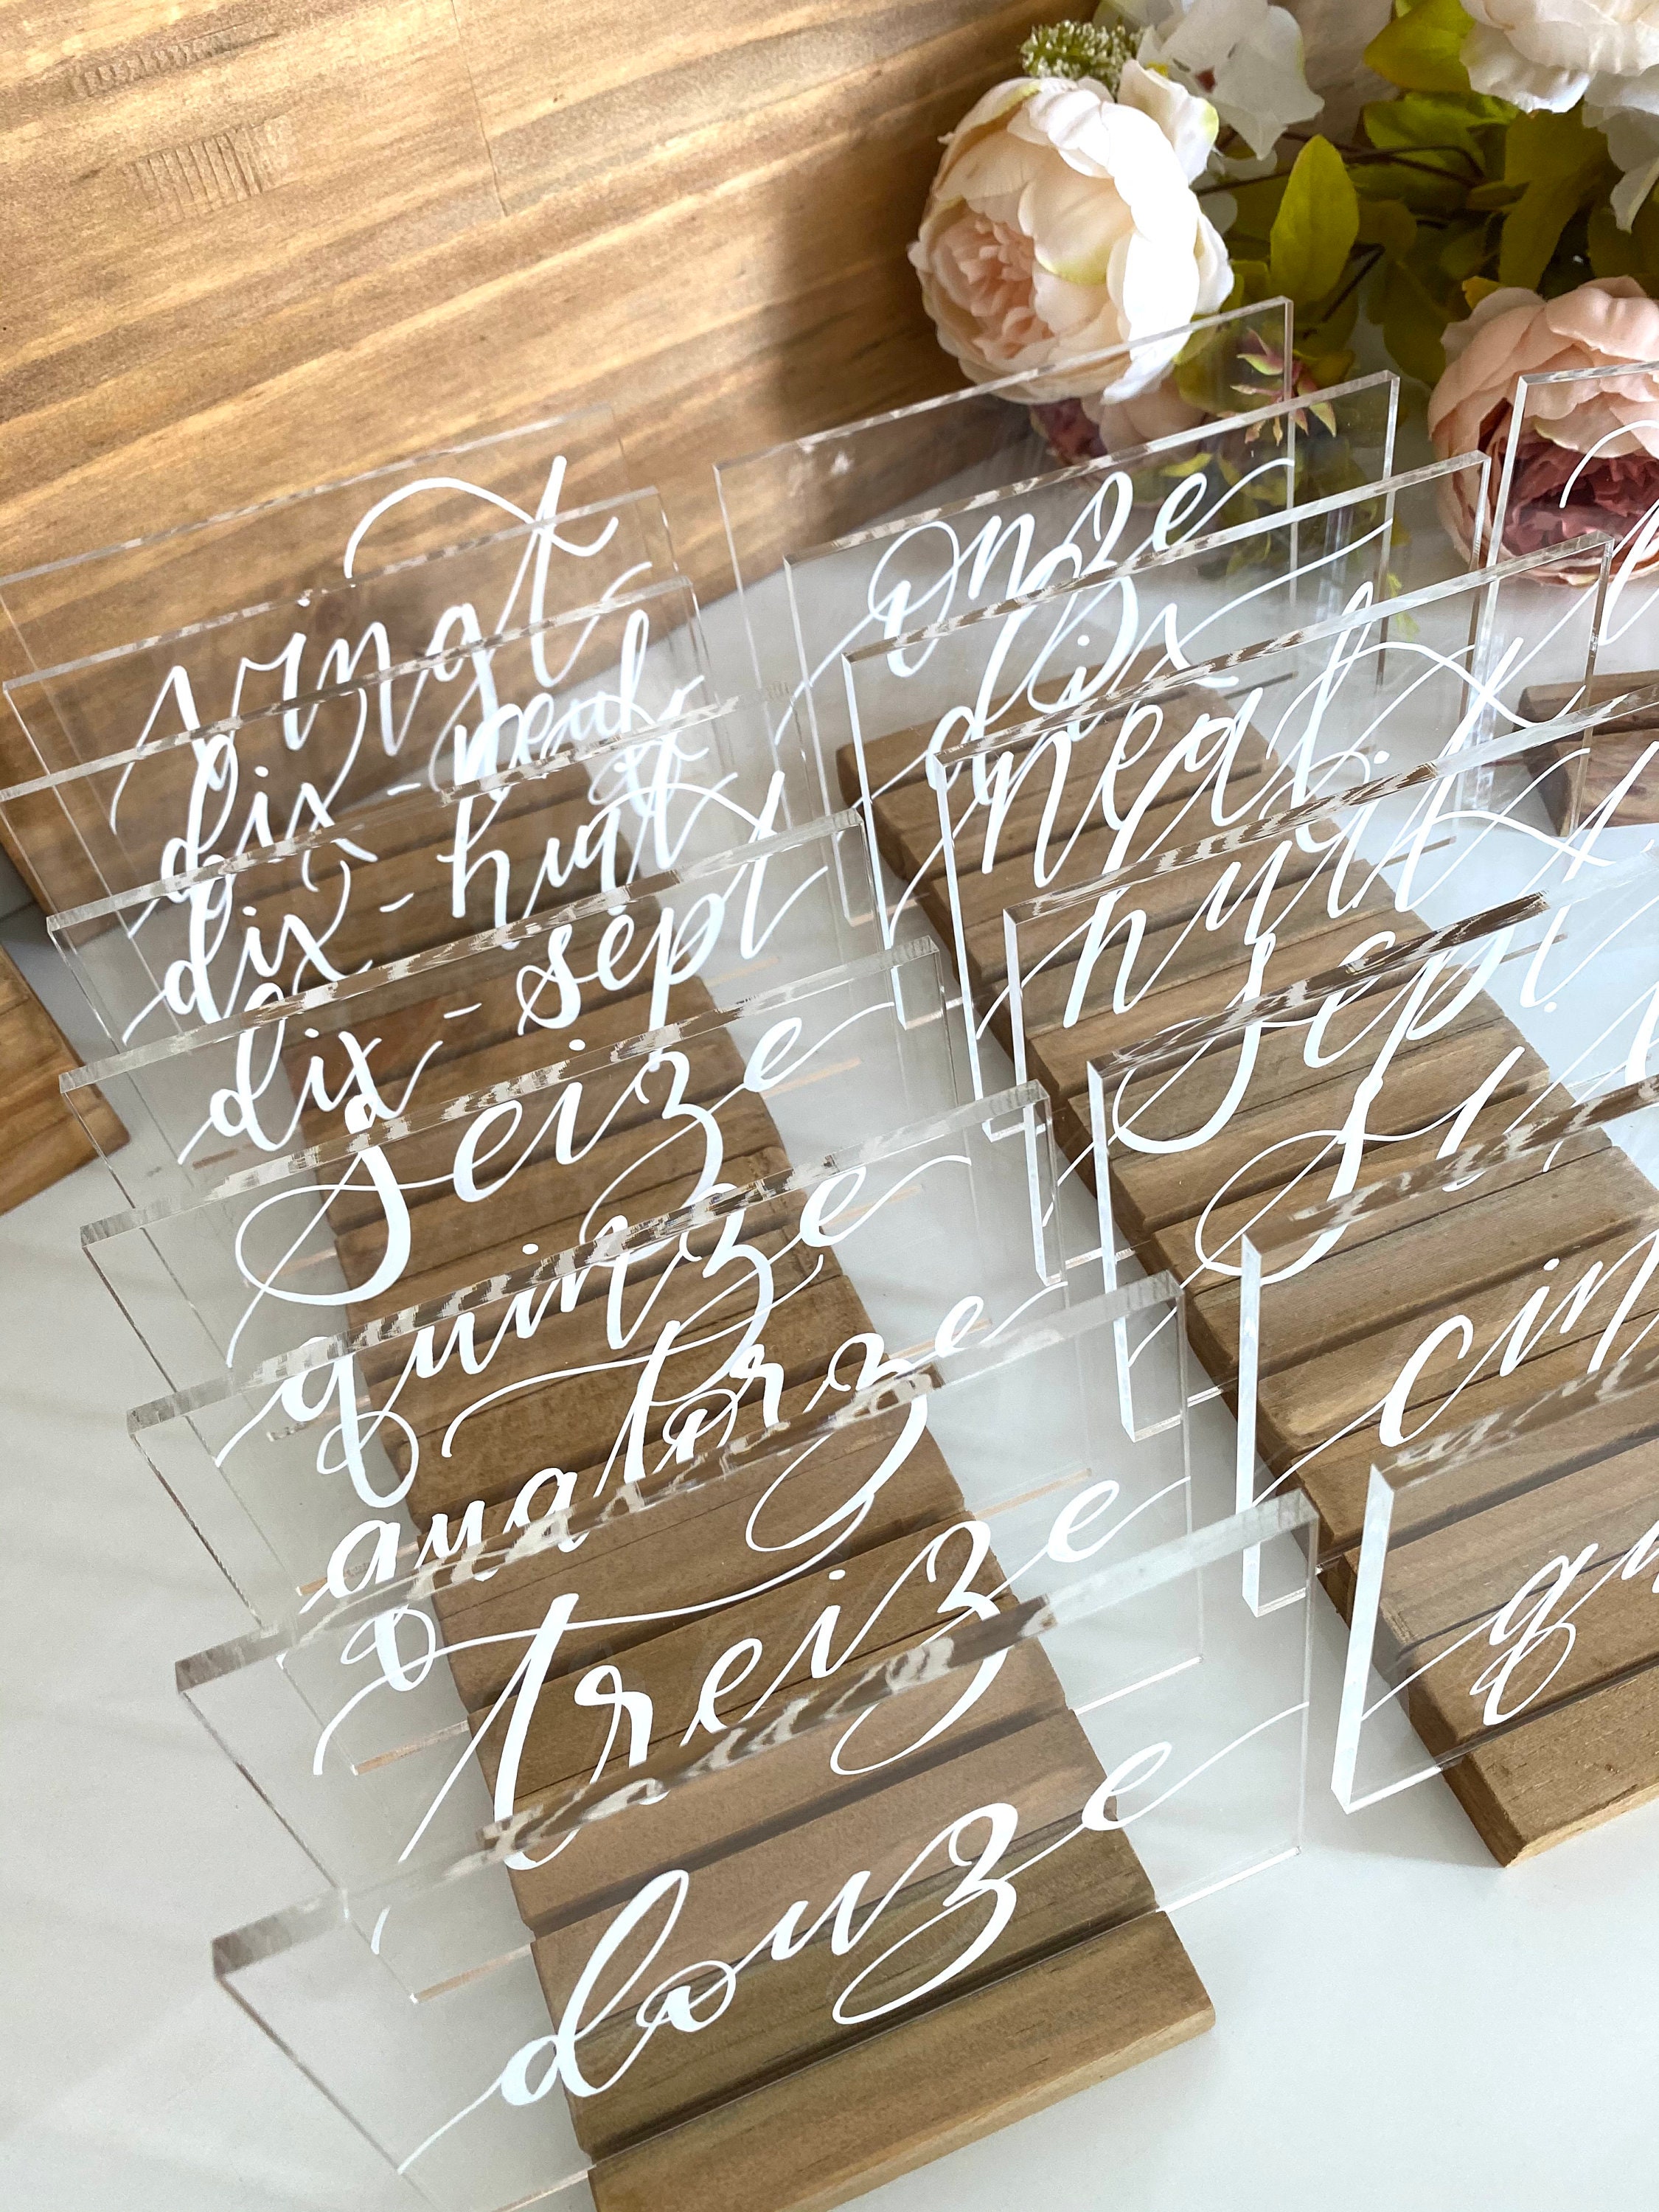 vingt
dix-neuf
dix-huit
dix-sept
seize
quinze
quatorze
treize
douze
onze
dix
neuf
huit
sept
si
cin
qu